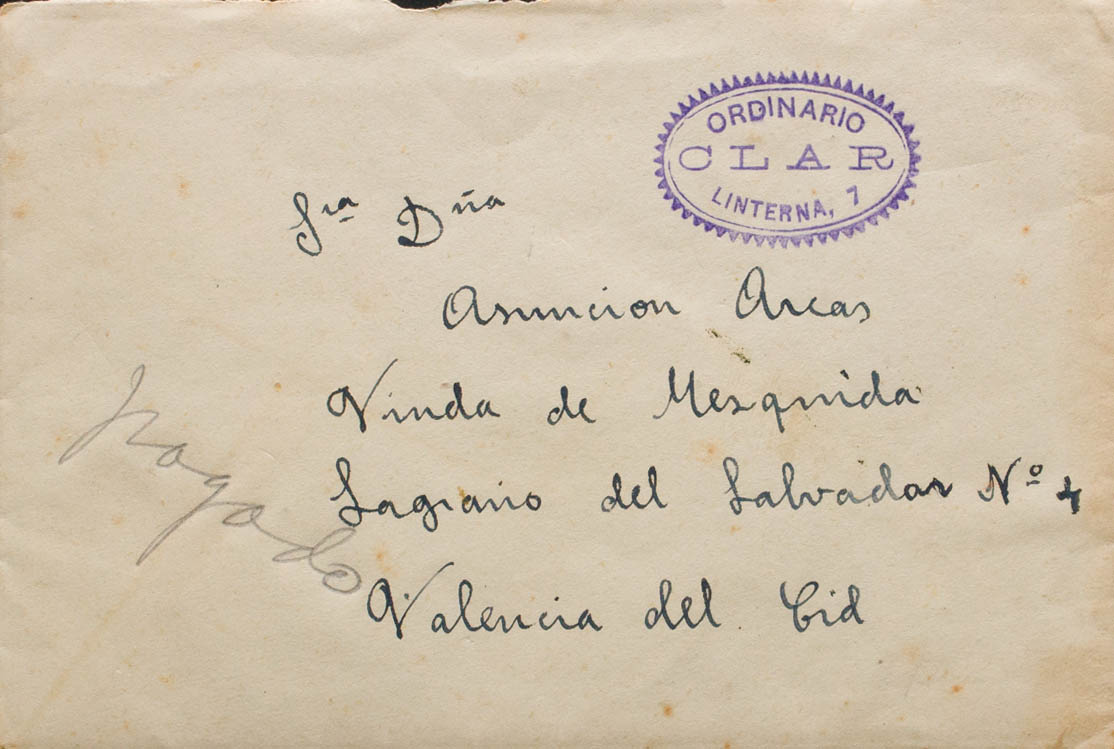 ORDINARIO
CLAR
LINTERNA, 7
Sra Dña
Asuncion Arcas
Viuda de Mezquida
Sagrario del Salvador Nº 4
Valencia del Cid
Pagado